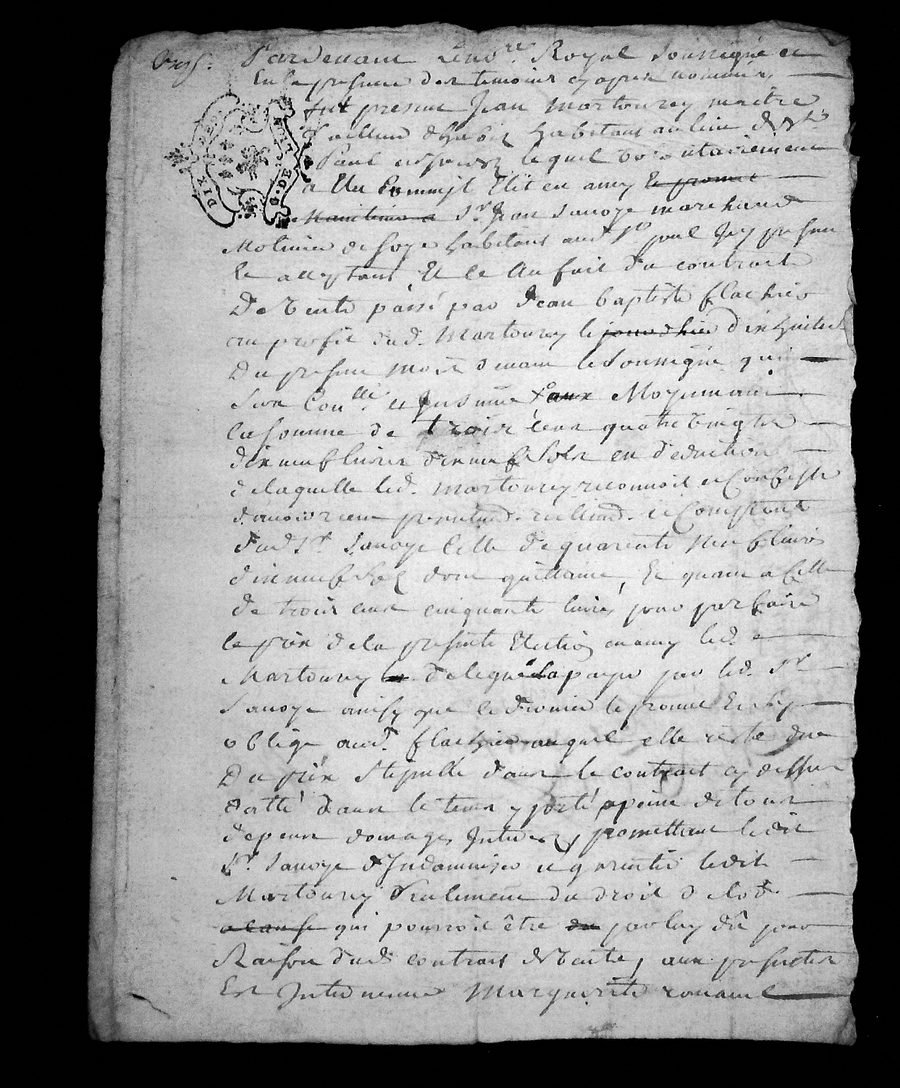 Pardevant le no.re Royal soussigné et
En la presence des temoins cy apres nommés
fut present Jean Martourey maitre
Tailleur d'habit habitant au lieu de St
Paul lequel volontairement
a Elu Commis Elit en amy le promet
Sr Jean Sauvoye marchand
Molinier de soye habitant aud. St paul Icy present
Et acceptant Et ce Au fait du contract
De Vente passé par Jean baptiste flachier
au profit dud. Martourey le jourdhier dixhuitie
Du present mois devant le soussigné qui
sera Con.llé et Moyennant
La somme de trois cens quatre vingts
dixneuf livres dixneuf sols en deduction
de laquelle led. Martourey reconnoit et Confesse
d'avoir reçu presentemt. reellemt. et Comptant
dud Sr. Sauvoye Celle de quarente neuf livres
dixneuf sols dont quittance, Et quant a Celle
de trois cent cinquante livres pour parfaire
le prix de la presente Election en amy led.
Martourey delegue la payer par led. Sr
Sauvoye ainsy que ce dernier le promet Et s'y
oblige aud. flachier auquel elle reste due
Du prix stipullé dans le contract cy dessus
datté dans le terme y porté a peine de tous
depens domages Interets, promettant ledit
Sr. Sauvoye d'Indamniser et garentir ledit
Martourey seulement du droit de lod
a cause qui pourroit être du par luy dû pour
Raison dud. contract de Vente, aux presentes
Est Intervenue Marguerite
DIX DEN
G. DE LYON